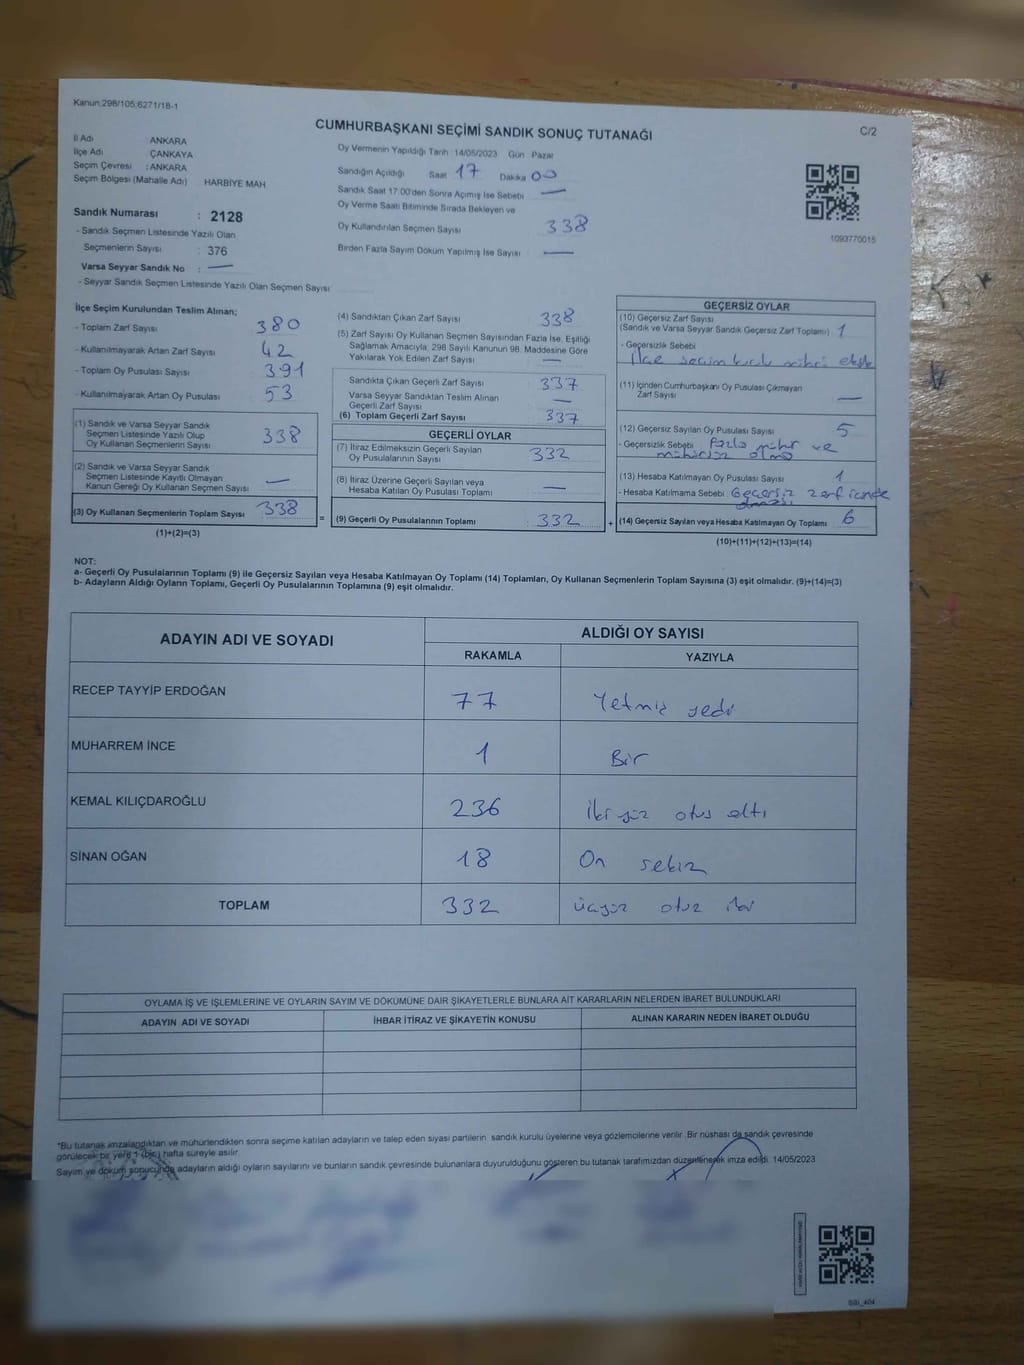 Kanun;298/105;6271/18-1
CUMHURBAŞKANI SEÇİMİ SANDIK SONUÇ TUTANAĞI
C/2
İl Adı : ANKARA
İlçe Adı : ÇANKAYA
Seçim Çevresi : ANKARA
Seçim Bölgesi (Mahalle Adı) HARBİYE MAH
Sandık Numarası : 2128
- Sandık Seçmen Listesinde Yazılı Olan
Seçmenlerin Sayısı : 376
Varsa Seyyar Sandık No : —
- Seyyar Sandık Seçmen Listesinde Yazılı Olan Seçmen Sayısı
Oy Vermenin Yapıldığı Tarih :14/05/2023 Gün Pazar
Sandığın Açıldığı Saat 17 Dakika 00
Sandık Saat 17:00'den Sonra Açımış İse Sebebi —
Oy Verme Saati Bitiminde Sırada Bekleyen ve
Oy Kullandırılan Seçmen Sayısı 338
Birden Fazla Sayım Döküm Yapılmış İse Sayısı —
1093770015
İlçe Seçim Kurulundan Teslim Alınan;
- Toplam Zarf Sayısı 380
- Kullanılmayarak Artan Zarf Sayısı 42
- Toplam Oy Pusulası Sayısı 391
- Kullanılmayarak Artan Oy Pusulası 53
(1) Sandık ve Varsa Seyyar Sandık
Seçmen Listesinde Yazılı Olup
Oy Kullanan Seçmenlerin Sayısı 338
(2) Sandık ve Varsa Seyyar Sandık
Seçmen Listesinde Kayıtlı Olmayan
Kanun Gereği Oy Kullanan Seçmen Sayısı —
(3) Oy Kullanan Seçmenlerin Toplam Sayısı 338
(1)+(2)=(3)
(4) Sandıktan Çıkan Zarf Sayısı 338
(5) Zarf Sayısı Oy Kullanan Seçmen Sayısından Fazla İse, Eşitliği
Sağlamak Amacıyla, 298 Sayılı Kanunun 98. Maddesine Göre
Yakılarak Yok Edilen Zarf Sayısı —
Sandıkta Çıkan Geçerli Zarf Sayısı 337
Varsa Seyyar Sandıktan Teslim Alınan
Geçerli Zarf Sayısı —
(6) Toplam Geçerli Zarf Sayısı 337
GEÇERLİ OYLAR
(7) İtiraz Edilmeksizin Geçerli Sayılan
Oy Pusulalarının Sayısı 332
(8) İtiraz Üzerine Geçerli Sayılan veya
Hesaba Katılan Oy Pusulası Toplamı —
= (9) Geçerli Oy Pusulalarının Toplamı 332 +
GEÇERSİZ OYLAR
(10) Geçersiz Zarf Sayısı
(Sandık ve Varsa Seyyar Sandık Geçersiz Zarf Toplamı) 1
- Geçersizlik Sebebi
İlçe seçim mührü
(11) İçinden Cumhurbaşkanı Oy Pusulası Çıkmayan
Zarf Sayısı —
(12) Geçersiz Sayılan Oy Pusulası Sayısı 5
- Geçersizlik Sebebi Fazla mühür ve
(13) Hesaba Katılmayan Oy Pusulası Sayısı 1
- Hesaba Katılmama Sebebi Geçersiz zarf içinde
olması
(14) Geçersiz Sayılan veya Hesaba Katılmayan Oy Toplamı 6
(10)+(11)+(12)+(13)=(14)
NOT:
a- Geçerli Oy Pusulalarının Toplamı (9) ile Geçersiz Sayılan veya Hesaba Katılmayan Oy Toplamı (14) Toplamları, Oy Kullanan Seçmenlerin Toplam Sayısına (3) eşit olmalıdır. (9)+(14)=(3)
b- Adayların Aldığı Oyların Toplamı, Geçerli Oy Pusulalarının Toplamına (9) eşit olmalıdır.
ADAYIN ADI VE SOYADI
ALDIĞI OY SAYISI
RAKAMLA YAZIYLA
RECEP TAYYİP ERDOĞAN 77 Yetmiş yedi
MUHARREM İNCE 1 Bir
KEMAL KILIÇDAROĞLU 236 İki yüz otuz altı
SİNAN OĞAN 18 On sekiz
TOPLAM 332 üçyüz otuz iki
OYLAMA İŞ VE İŞLEMLERİNE VE OYLARIN SAYIM VE DÖKÜMÜNE DAİR ŞİKAYETLERLE BUNLARA AİT KARARLARIN NELERDEN İBARET BULUNDUKLARI
ADAYIN ADI VE SOYADI İHBAR İTİRAZ VE ŞİKAYETİN KONUSU ALINAN KARARIN NEDEN İBARET OLDUĞU
*Bu tutanak imzalandıktan ve mühürlendikten sonra seçime katılan adayların ve talep eden siyasi partilerin sandık kurulu üyelerine veya gözlemcilerine verilir. Bir nüshası da sandık çevresinde
görülecek bir yere 1 (bir) hafta süreyle asılır.
Sayım ve döküm sonucunda adayların aldığı oyların sayılarını ve bunların sandık çevresinde bulunanlara duyurulduğunu gösteren bu tutanak tarafımızdan düzenlenerek imza edildi. 14/05/2023